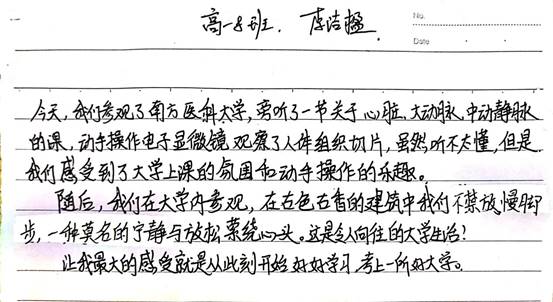 高一8班. 李洁楹
No.
Date
今天,我们参观了南方医科大学,旁听了一节关于心脏、大动脉、中动静脉
的课,动手操作电子显微镜观察了人体组织切片,虽然听不太懂,但是
我们感受到了大学上课的氛围和动手操作的乐趣。
随后,我们在大学内参观,在古色古香的建筑中我们不禁放慢脚
步,一种莫名的宁静与放松萦绕心头。这是多么向往的大学生活!
让我最大的感受就是从此刻开始好好学习,考上一所好大学。